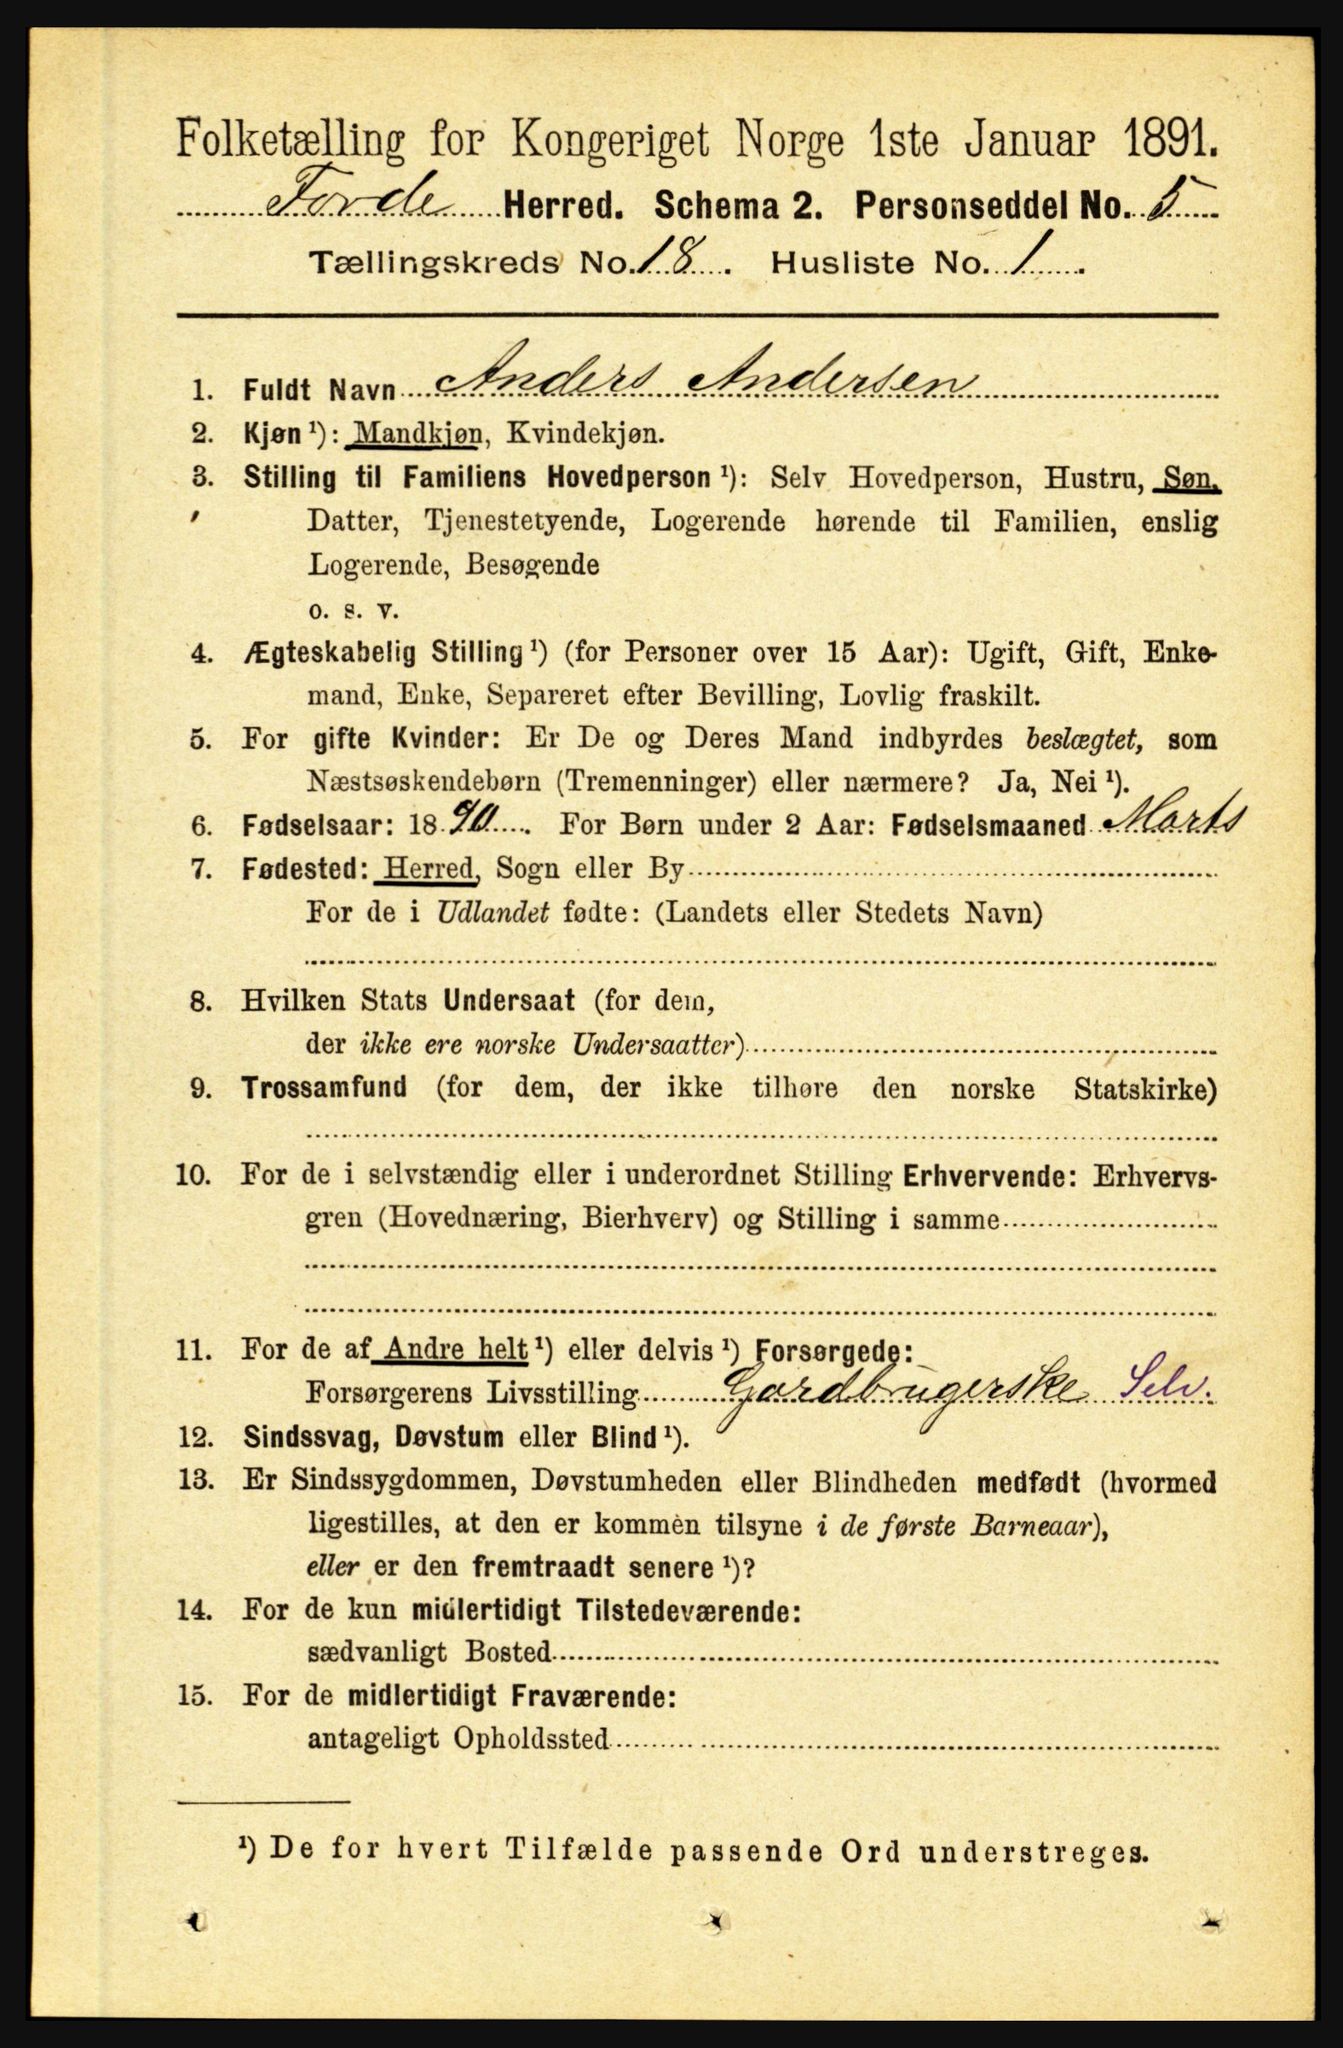 Folketælling for Kongeriget Norge 1ste Januar 1891.
Førde Herred. Schema 2. Personseddel No. 5
Tællingskreds No. 18. Husliste No. 1.
1. Fuldt Navn Anders Andersen
2. Kjøn ¹): Mandkjøn, Kvindekjøn.
3. Stilling til Familiens Hovedperson ¹): Selv Hovedperson, Hustru, Søn,
Datter, Tjenestetyende, Logerende hørende til Familien, enslig
Logerende, Besøgende
o. s. v.
4. Ægteskabelig Stilling ¹) (for Personer over 15 Aar): Ugift, Gift, Enke-
mand, Enke, Separeret efter Bevilling, Lovlig fraskilt.
5. For gifte Kvinder: Er De og Deres Mand indbyrdes beslægtet, som
Næstsøskendebørn (Tremenninger) eller nærmere? Ja, Nei ¹).
6. Fødselsaar: 1890. For Børn under 2 Aar: Fødselsmaaned Marts
7. Fødested: Herred, Sogn eller By
For de i Udlandet fødte: (Landets eller Stedets Navn)
8. Hvilken Stats Undersaat (for dem,
der ikke ere norske Undersaatter)
9. Trossamfund (for dem, der ikke tilhøre den norske Statskirke)
10. For de i selvstændig eller i underordnet Stilling Erhvervende: Erhvervs-
gren (Hovednæring, Bierhverv) og Stilling i samme
11. For de af Andre helt ¹) eller delvis ¹) Forsørgede:
Forsørgerens Livsstilling Gardbrugerske Selv.
12. Sindssvag, Døvstum eller Blind ¹).
13. Er Sindssygdommen, Døvstumheden eller Blindheden medfødt (hvormed
ligestilles, at den er kommen tilsyne i de første Barneaar),
eller er den fremtraadt senere ¹)?
14. For de kun midlertidigt Tilstedeværende:
sædvanligt Bosted
15. For de midlertidigt Fraværende:
antageligt Opholdssted
¹) De for hvert Tilfælde passende Ord understreges.